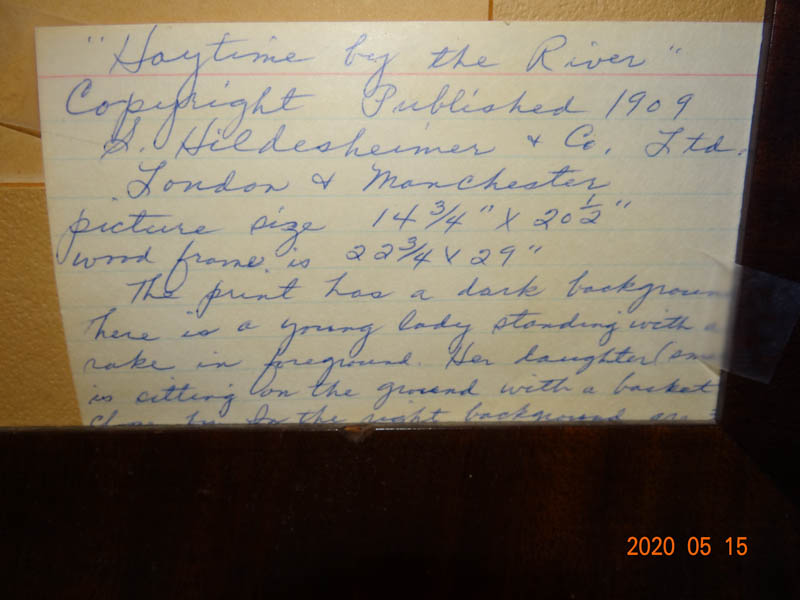 "Haytime by the River"
Copyright Published 1909
S. Hildesheimer & Co. Ltd.
London & Manchester
picture size 14 3/4" X 20 1/2"
wood frame is 22 3/4 X 29"
The print has a dark backgroun
here is a young lady standing with a
rake in foreground. Her daughter (
is sitting on the ground with a basket
close by In the right background are
2020 05 15